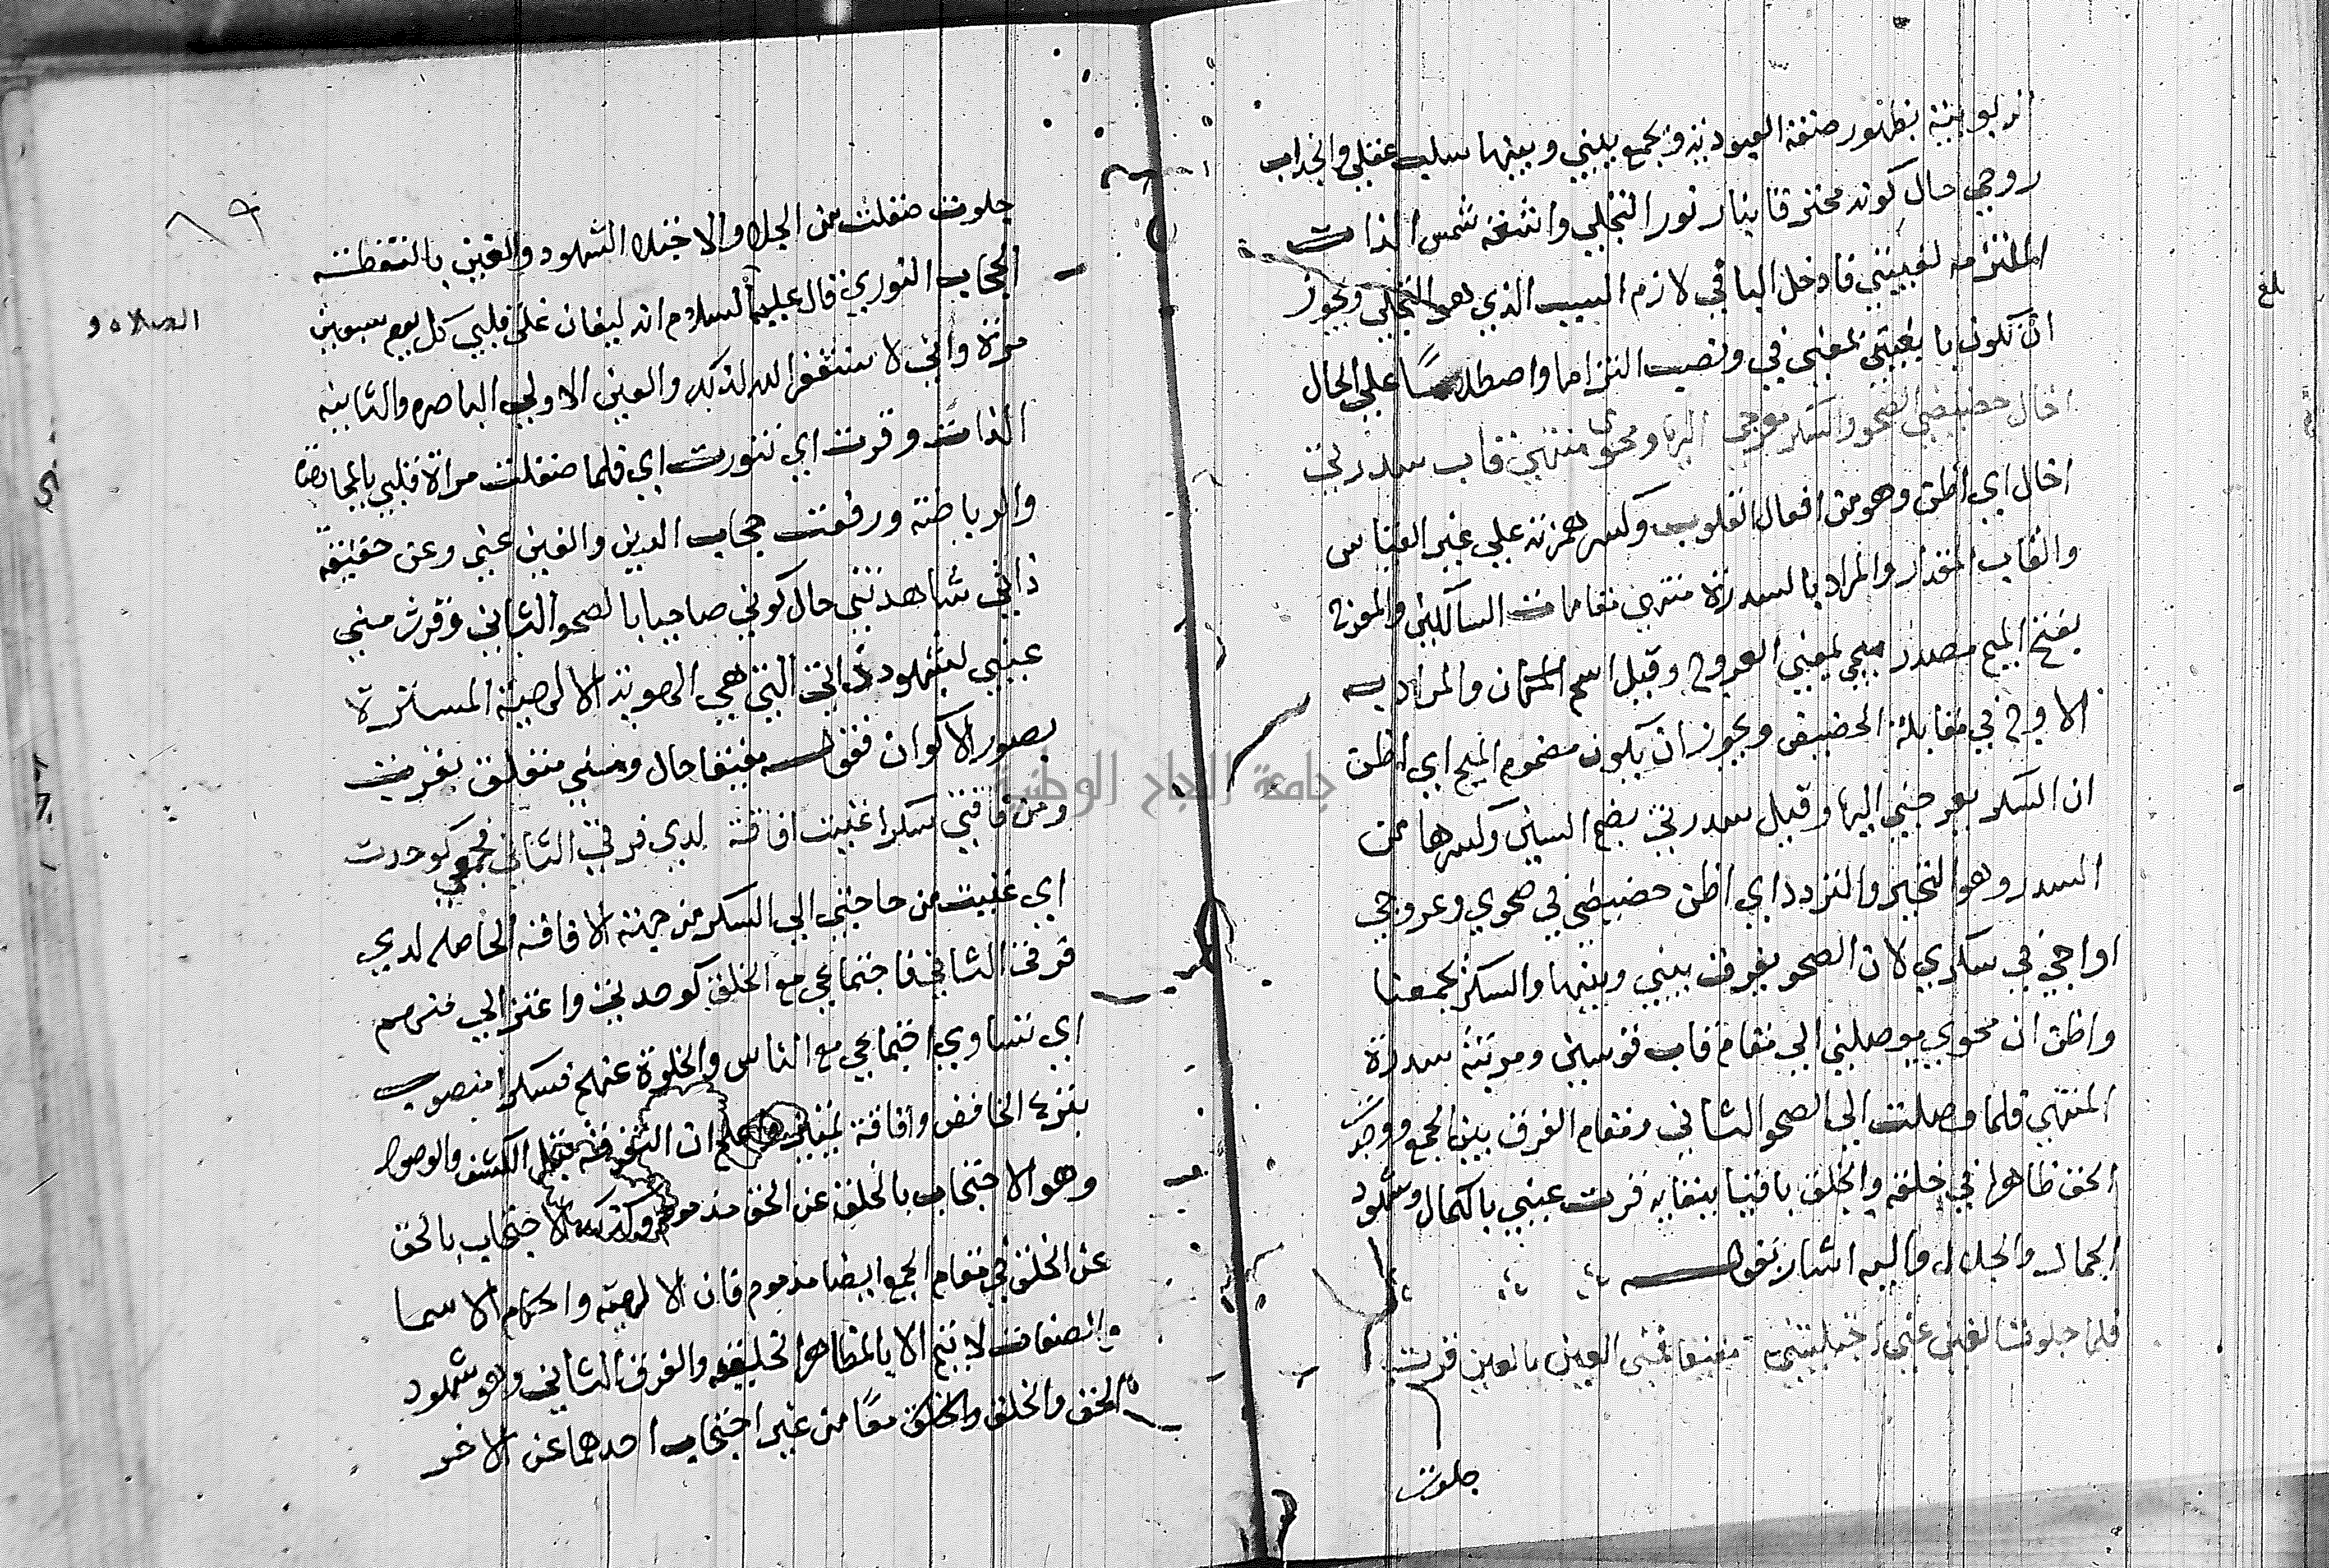 الربوبية بظهور صفة العبودية وبجمع بيني وبينها سلب عقلي وانجذاب
روحي حال كونه محترقا بنار نور التجلي واشعة شمس الذات
الملتزمه لغيبتي فادخل البا في لازم السبب الذي هو التجلي ويجوز
ان تكون با بغيبتي بمعني في ونصب التزاما واصطلاما علي الحال
اخال حضيضي الصحو والسكر معرجي اليها ومحوي منتهي قاب سدرتي
اخال اي اظن وهو من افعال القلوب وكسر همزته علي غير القياس
والقاب المقدار والمراد بالسدرة منتهي مقامات السالكين والمعرج
بفتح الميم مصدر ميمي بمعني العروج وقيل اسم المكان والمراد به
الاوج في مقابلة الحضيض ويجوز ان يكون مضموم الميم اي اظن
ان السكر يعرجني اليها وقيل سدرتي بضم السين وكسرها من
السدر وهو التحير والتردد اي اظن حضيضي في صحوي وعروجي
اواجي في سكري لان الصحو يفرق بيني وبينها والسكر يجمعنا
واظن ان محوي يوصلني الي مقام قاب قوسين ومرتبة سدرة
المنتهي فلما وصلت الي الصحو الثاني ومقام الفرق بين الجمع ووجد
الحق ظاهرا في خلقه والخلق باقيا ببقايه قرت عيني بالكمال وشهود
الجمال والجلال واليه اشار بقوله
فلما جلوت الغين عني اجتليتني مفيقا فمني العين بالعين قرت
جلوت
بلغ
جلوت صقلت من الجلا والاجتلا الشهود والغين بالنقطة
الحجاب النوري قال عليه السلام انه ليغان علي قلبي كل يوم سبعين
الصلاه و
مرة واني لا ستغفر الله لذلك والعين الاولي الباصره والثانيه
الذات وقرت اي تنورت اي فلما صقلت مراة قلبي بالمجاهدة
والرياضة ورفعت حجاب الدين والغين عني وعن حقيقة
ذاتي شاهدتني حال كوني صاحيا بالصحو الثاني وقرت مني
عيني لشهود ذاتي التي هي الهوية الالهية المستترة
بصور الاكوان فقوله مفيقا حال ومني متعلق بقرت
ومن فاقتي سكرا غنيت افاقة لدي فرقي الثاني فجمعي كوحدت
اي غنيت من حاجتي الي السكر من جهة الافاقه الحاصله لدي
فرقي الثاني فاجتماعي مع الخلق كوحدتي واعتزالي منهم
اي تساوي اجتماعي مع الناس والخلوة عنهم فسكرا منصوب
بنزع الخافض وافاقة تمييز اعلم ان التفرقة قبل الكشف والوصول
وهو الاحتجاب بالخلق عن الحق مذموم وكذلك الاحتجاب بالحق
عن الخلق في مقام الجمع ايضا مذموم فان الالهية واحكام الاسما
والصفات لا يتم الا بالمظاهر الخليقه والفرق الثاني وهو شهود
الحق والخلق والخلق معا من غير احتجاب احدهما عن الاخر
جامعة النجاح الوطنية